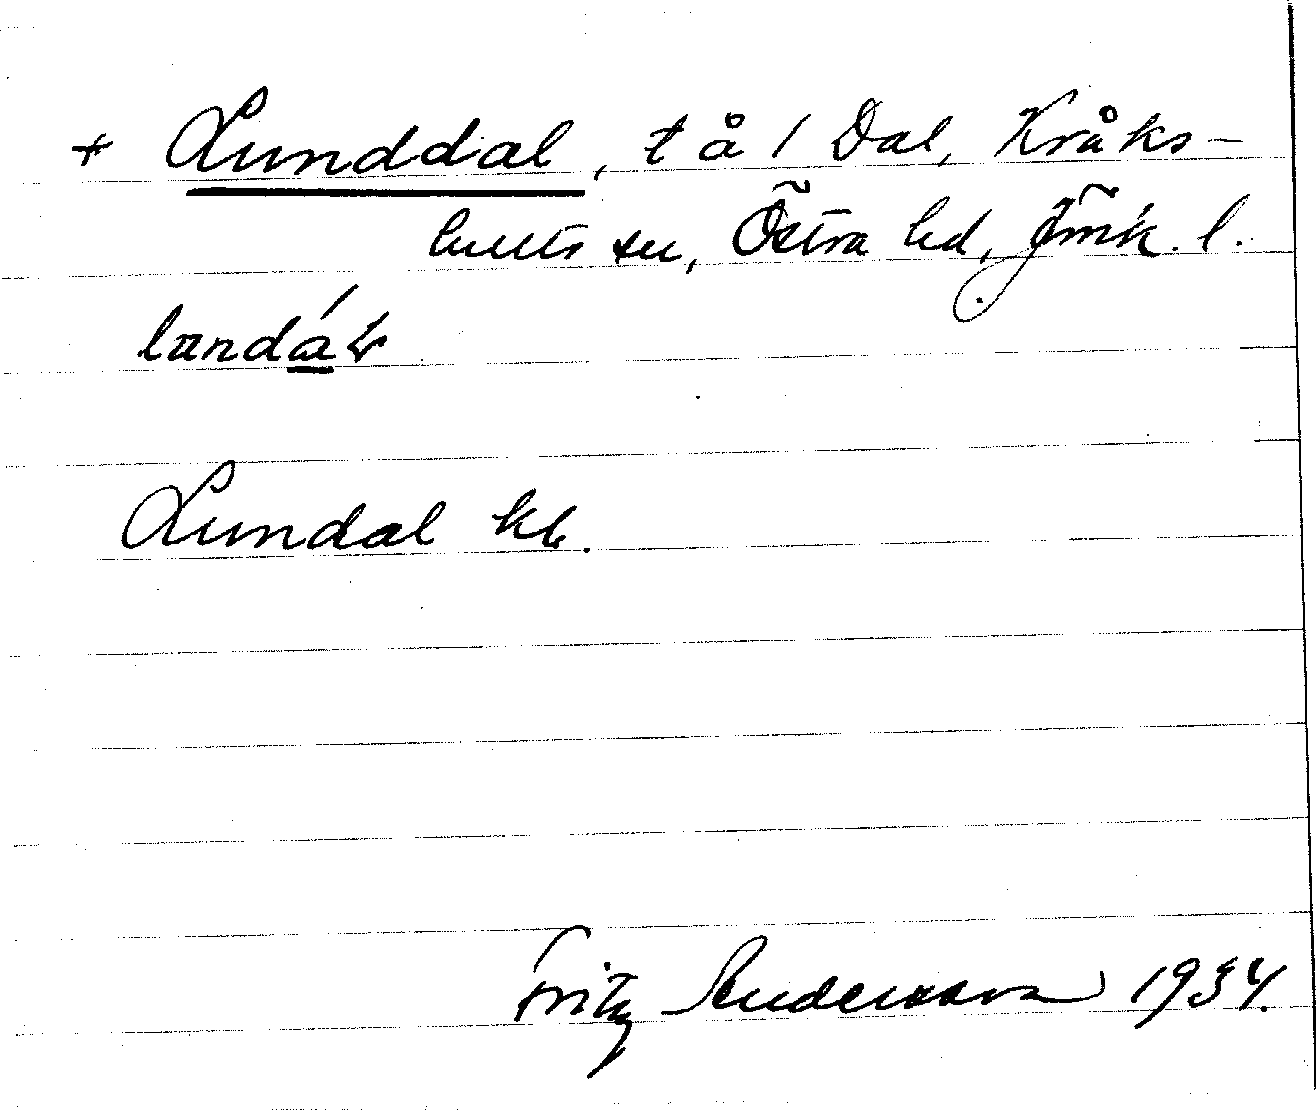 + Lunddal, t å 1 Dal, Kråks-
hults sn, Östra hd, Jönk. l.
Lundal kb.
Fritz Andersson 1934.